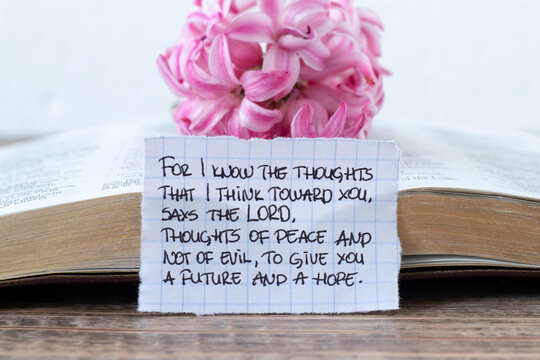 FOR I KNOW THE THOUGHTS
THAT I THINK TOWARD YOU,
SAYS THE LORD,
THOUGHTS OF PEACE AND
NOT OF EVIL, TO GIVE YOU
A FUTURE AND A HOPE.